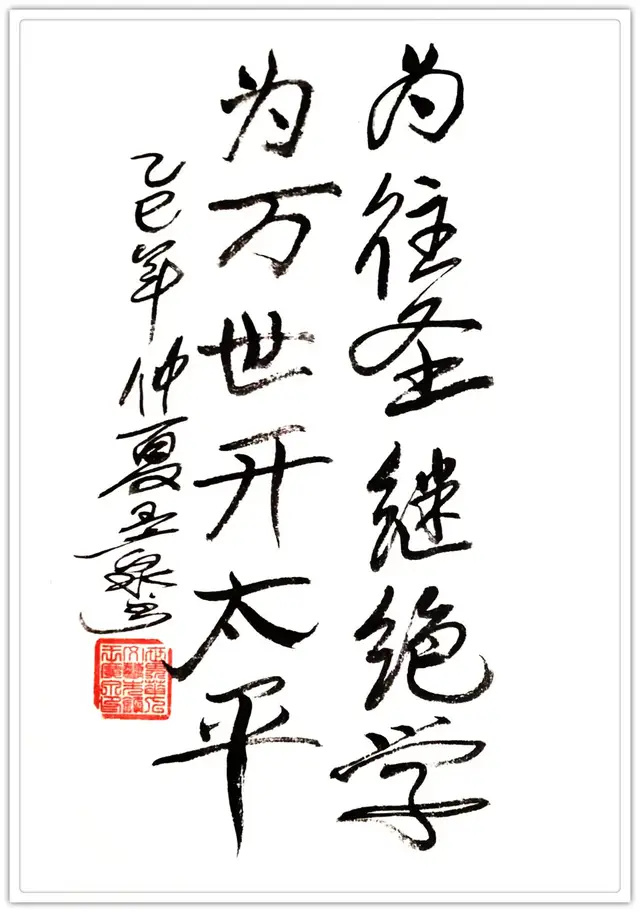 为往圣继绝学
为万世开太平
乙巳年仲夏王泉书